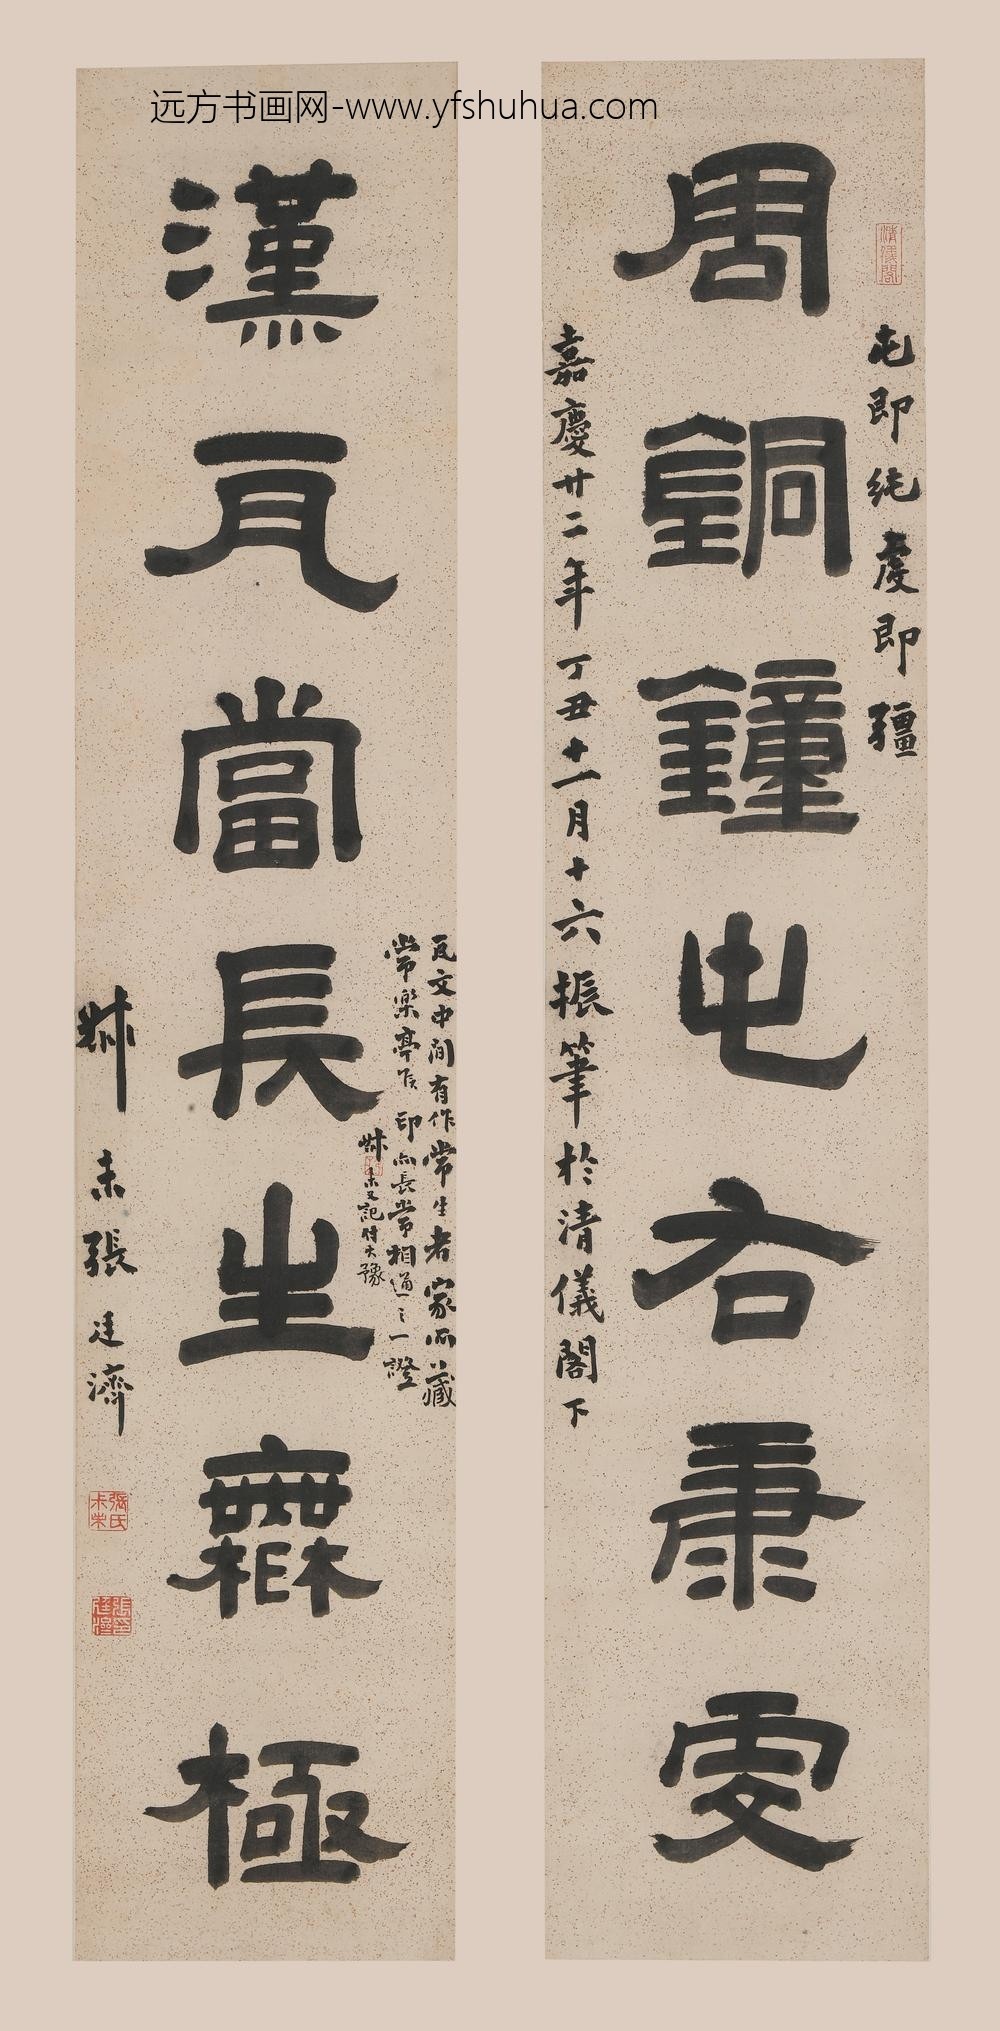 远方书画网-www.yfshuhua.com
清儀閣
屯即純虔即疆
周銅鐘屯右康虔
嘉慶廿二年丁丑十一月十六振筆於清儀閣下
瓦文中間有作常生者家所藏
常樂亭侯印亦長常相通之一證
叔未又記付大豫
漢瓦當長生無極
叔未張廷濟
張氏叔未
張廷濟印